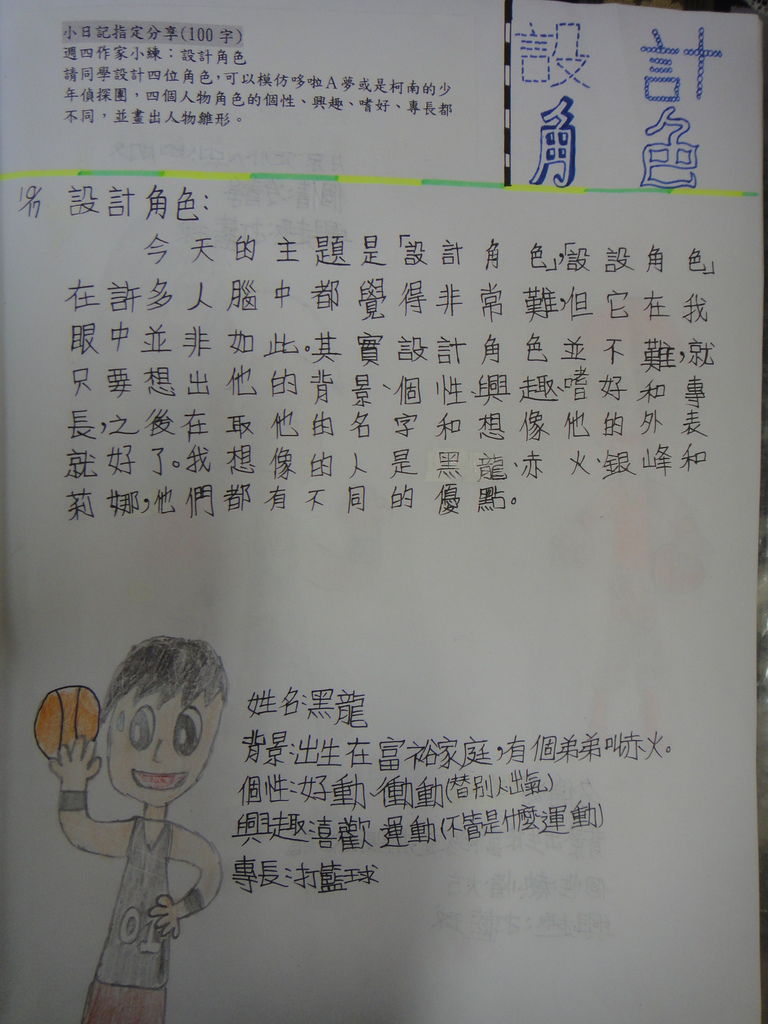 小日記指定分享(100字)
週四作家小練：設計角色
請同學設計四位角色，可以模仿哆啦A夢或是柯南的少
年偵探團，四個人物角色的個性、興趣、嗜好、專長都
不同，並畫出人物雛形。
設計
角色
設計角色：
今天的主題是「設計角色」,「設設角色」
在許多人腦中都覺得非常難,但它在我
眼中並非如此。其實設計角色並不難,就
只要想出他的背景、個性、興趣、嗜好和專
長,之後在取他的名字和想像他的外表
就好了。我想像的人是黑龍、赤火、銀峰和
莉娜,他們都有不同的優點。
姓名:黑龍
背景:出生在富裕家庭,有個弟弟叫赤火。
個性:好動、衝動(替別人出氣)
興趣:喜歡運動(不管是什麼運動)
專長:打籃球